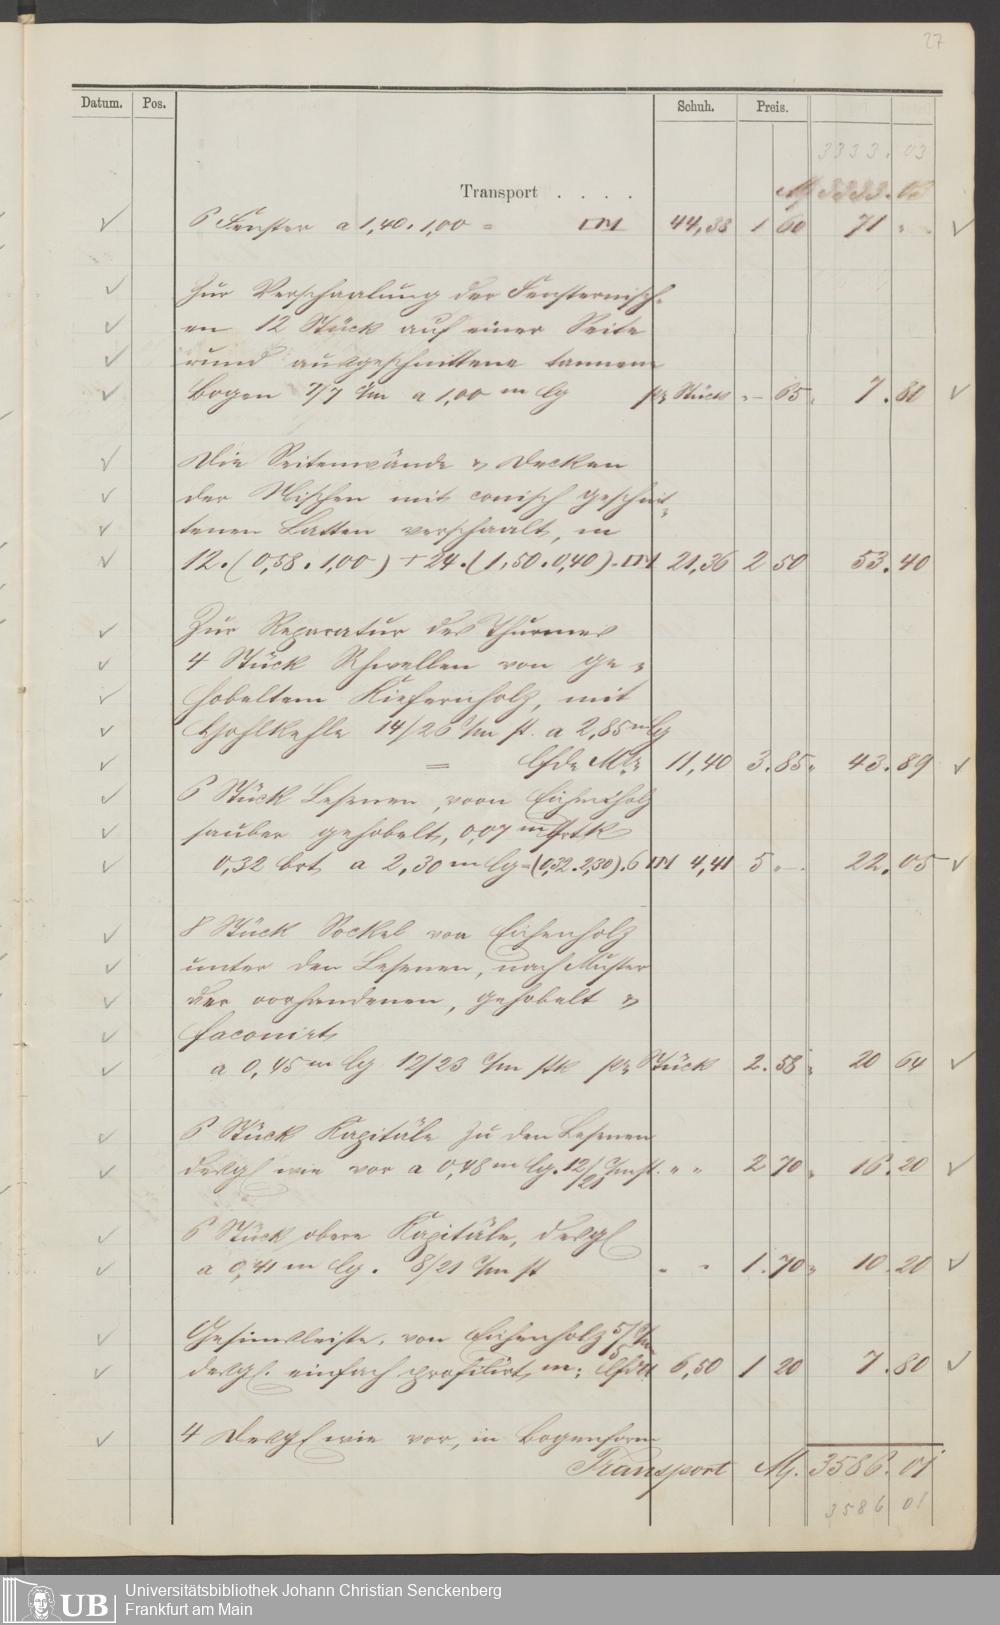 27
Datum. Pos. Schuh. Preis.
3333.03
Transport . . . . M 3333.03
6 Fenster a 1,40.1,00 = □M 44,38 1 60 71 "
Zur Verschaalung der Fensternisch-
en 12 Stück auf einer Seite
rund ausgeschnittene tannene
Bogen 7/7 c/m a 1,00 m lg pr Stück " – 65 7.80
Die Seitenwände & Decken
der Nischen mit conisch geschnit-
tenen Latten verschaalt, m
12.(0,58.1,00) + 24.(1,50.0,40) = □M 21,36 2 50 53.40
Zur Reparatur des Thurmes
4 Stück Schwellen von ge-
hobeltem Kiefernholz, mit
Hohlkehle 14/26 c/m st. a 2,85 m lg
= lfde Mtr 11,40 3.85 43.89
6 Stück Lesenen, von Eichenholz
sauber gehobelt, 0,07 m stk
0,32 brt a 2,30 m lg = (0,32.2,30).6 □M 4,41 5 " – 22.05
8 Stück Sockel von Eichenholz
unter den Lesenen, nach Muster
der vorhandenen, gehobelt &
faconirt
a 0,45 m lg 12/23 c/m stk pr Stück 2.58 20 64
6 Stück Kapitäle zu den Lesenen
desgl wie vor a 0,48 m lg. 12/21 c/m st. " " 2 70 16.20
6 Stück obere Kapitäle, desgl
a 0,41 m lg. 8/21 c/m st " " 1.70 10.20
Gesimsleiste, von Eichenholz 5/5 c/m
desgl. einfach profilirt, m: lfd M 6,50 1 20 7.80
4 Desgl wie vor, in Bogenform
Transport M. 3586.01
3586 01
Universitätsbibliothek Johann Christian Senckenberg
Frankfurt am Main
UB